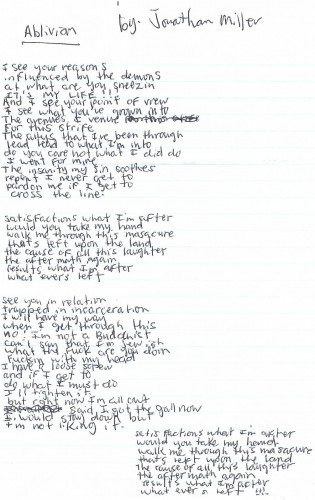 Ablivion
by: Jonathan Miller
I see your reasons
influenced by the demons
at what are you sneezin
IT'S MY LIFE!!
And I see your point of view
I see what you've grown into
The avenues I venue
For this strife
The ways that I've been through
lead to what I'm into
do you care not what I did do
I went for mine
The insanity my sin soothes
repent I never get to
pardon me if I get to
cross the line.
satisfactions what I'm after
would you take my hand
walk me through this masacure
thats left upon the land
the cause of all this laughter
the after math again
results what I'm after
what evers left
see you in relation
trapped in incarceration
I will have my way
when I get through this
no! I'm not a Buddhist
can't say that I'm Jewish
what the fuck are you doin
Fuckin with my head
I have a loose screw
and if I get to
do what I must do
I'll tighten it
but now I'm all out
said I got the gall now
I would slow down but
I'm not liking it.
satisfactions what I'm after
would you take my hand
walk me through this masacure
thats left upon the land
the cause of all this laughter
the after math again
results what I'm after
what ever's left !!!